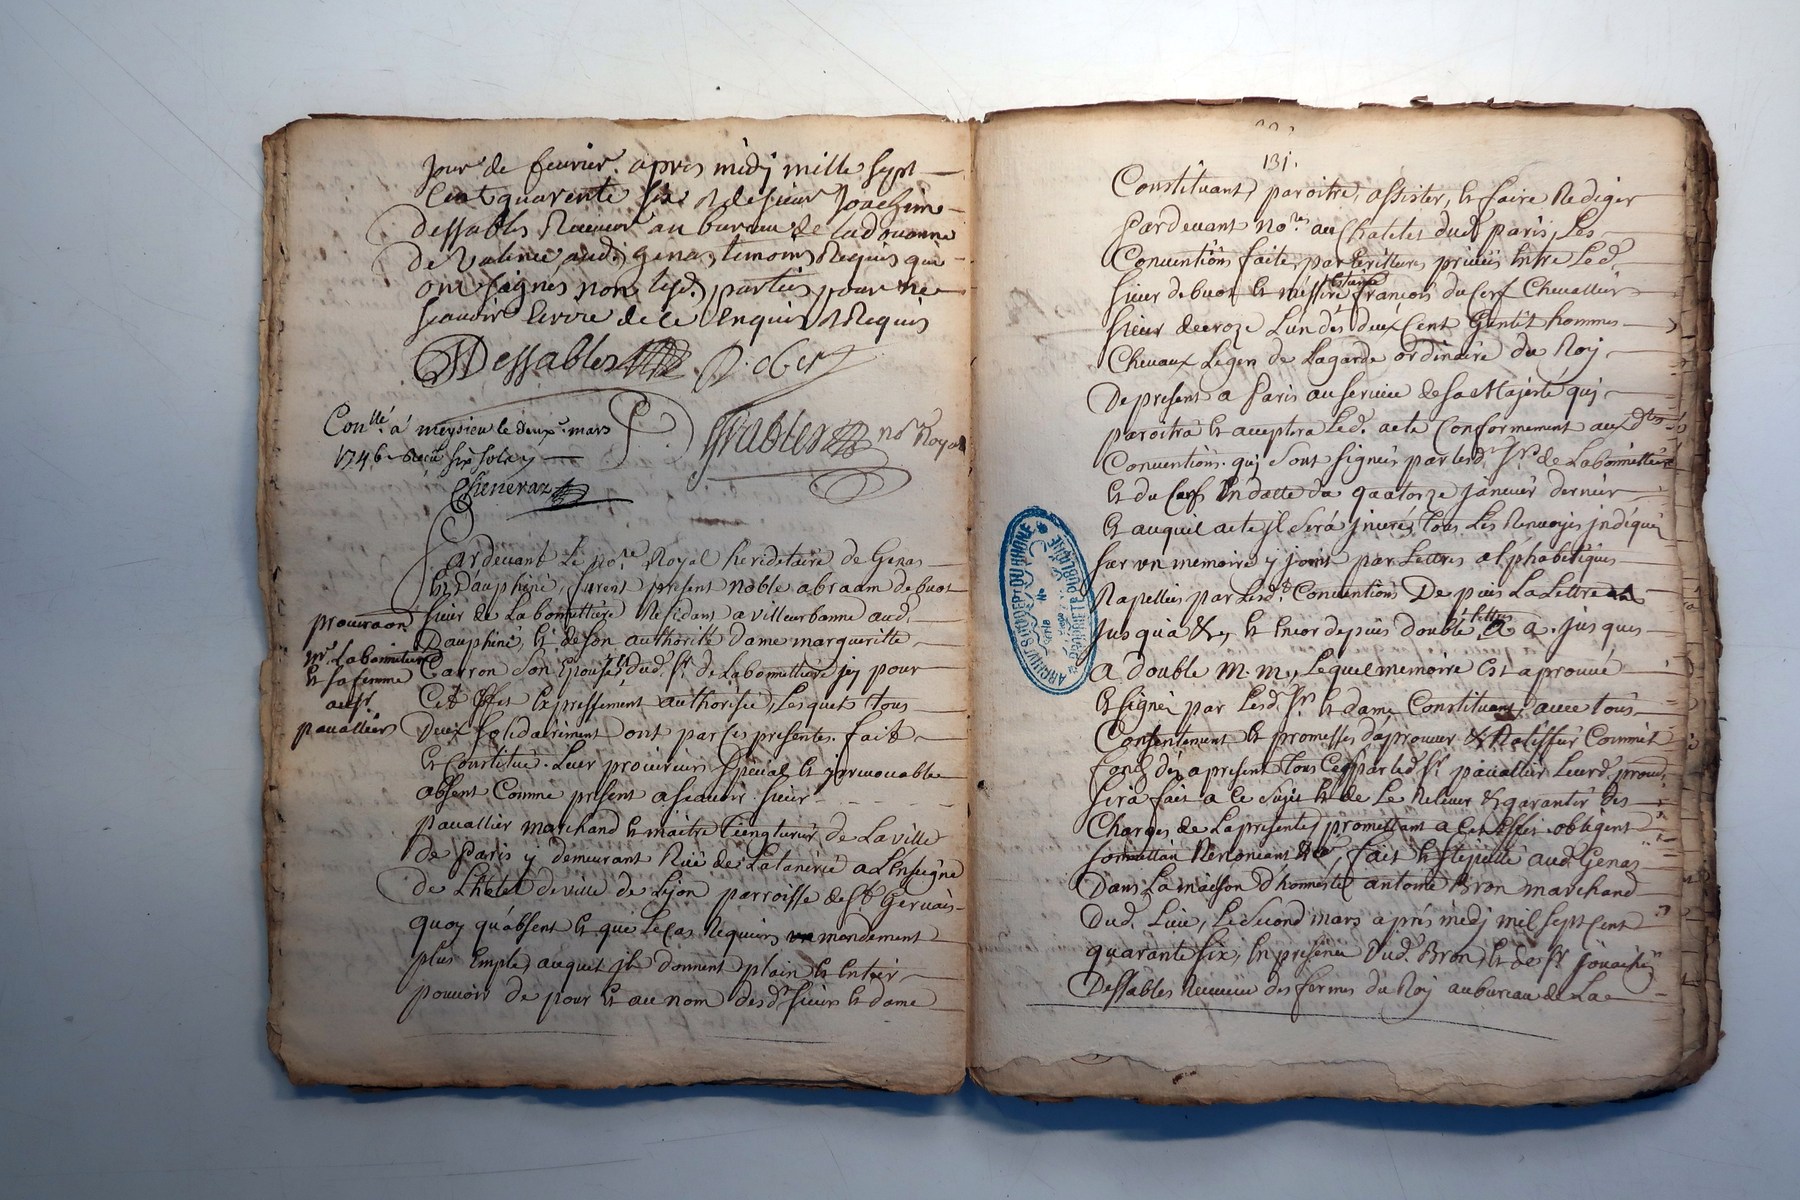 jour de feurier apres midj mille sept
Cent quarente six & de sieur Joachim
dessables Receueur au bureau de la douanne
de Valence aud. genas temoins Requis qui
ont signés non lesd. parties pour ne
scauoir Ecrire de ce Enquis & Requis
Dessables
Con.llé à meysieu le deux.e mars
1746 Receu six sols
Guenerat
Grables no.re Royal
Pardeuant Le no.re Royal hereditaire de Genas
En Dauphiné, furent present noble abraam debuot
sieur de La bomettiere Residant a villeurbanne aud.
Dauphiné, & de son authorité dame margueritte
Carron son Epouse, dud. Sr. de Labomettiere jcy pour
Cet Effet Expressement authorisée, Lesquels tous
Deux solidairement ont par Ces presentes fait
& Constitué Leur procureur special & jrreuocable
absent Comme present a scauoir sieur
pauallier marchand & maitre teingturier de La ville
de Paris y demeurant Rue de La tanerie a L'Enseigne
de L'hotel de ville de Lyon parroisse de St. Geruais
quoy qu'absent & que Le Cas Requiers un mandement
plus Emple, auquel jls donnent plain & Entier
pouuoir de pour & au nom desd. sieur & dame
procuraon
mr. Labometiere
& sa femme
au sr.
pauallier
131.
Constituant, paroitre, assister, & faire Rediger
Pardeuant no.res au Chatelet dud. paris, Les
Conuentions faite, par Ecritures priuées Entre Led.
sieur debuot & messire francois du Cerf Cheuallier
sieur decroze L'un des deux Cent Gentil hommes
Cheuaux Leger de La garde ordinaire du Roy
De present a Paris au seruice de sa Majesté qui
paroitra & acceptera Led. acte Conformement aux d.tes
Conuentions qui sont signées par lesd. Srs. de Labomettiere
& du Cerf En datte du quatorze januier dernier
& auquel acte jl sera jnceré, tous Les Renuoyes jndiqués
sur un memoire y joint par Lettres alphabetiques
Rapellées par Lesd. Conuentions De puis La Lettre
jusqua &, & Encor depuis double Lettre a a. jusques
A double m. m., Lequel memoire Est aprouué
& signé par Lesd. Sr. & dame Constituant, auec tous
Consentement & promesses d'aprouuer & Ratiffier Comme
fons des apresent tous Ce que par led. Sr. pauallier Leurd. procur.
sera fait a Ce sujet & de Le Releuer & garantir des
Charges de La presente, promettant a Cet Effet obligent
soumettan Renonceant &c, fait & stipullé aud. Genas
Dans La maison d'honneste antoine Bron marchand
Dud. Lieu, Le second mars aprés midj mil sept cent
quarante six, En presence Dud. Bron & de Sr. Joachin
Dessables Receueur des fermes du Roy au bureau de La
ARCHIVES DU DEPT DU RHONE
PROPRIETE PUBLIQUE